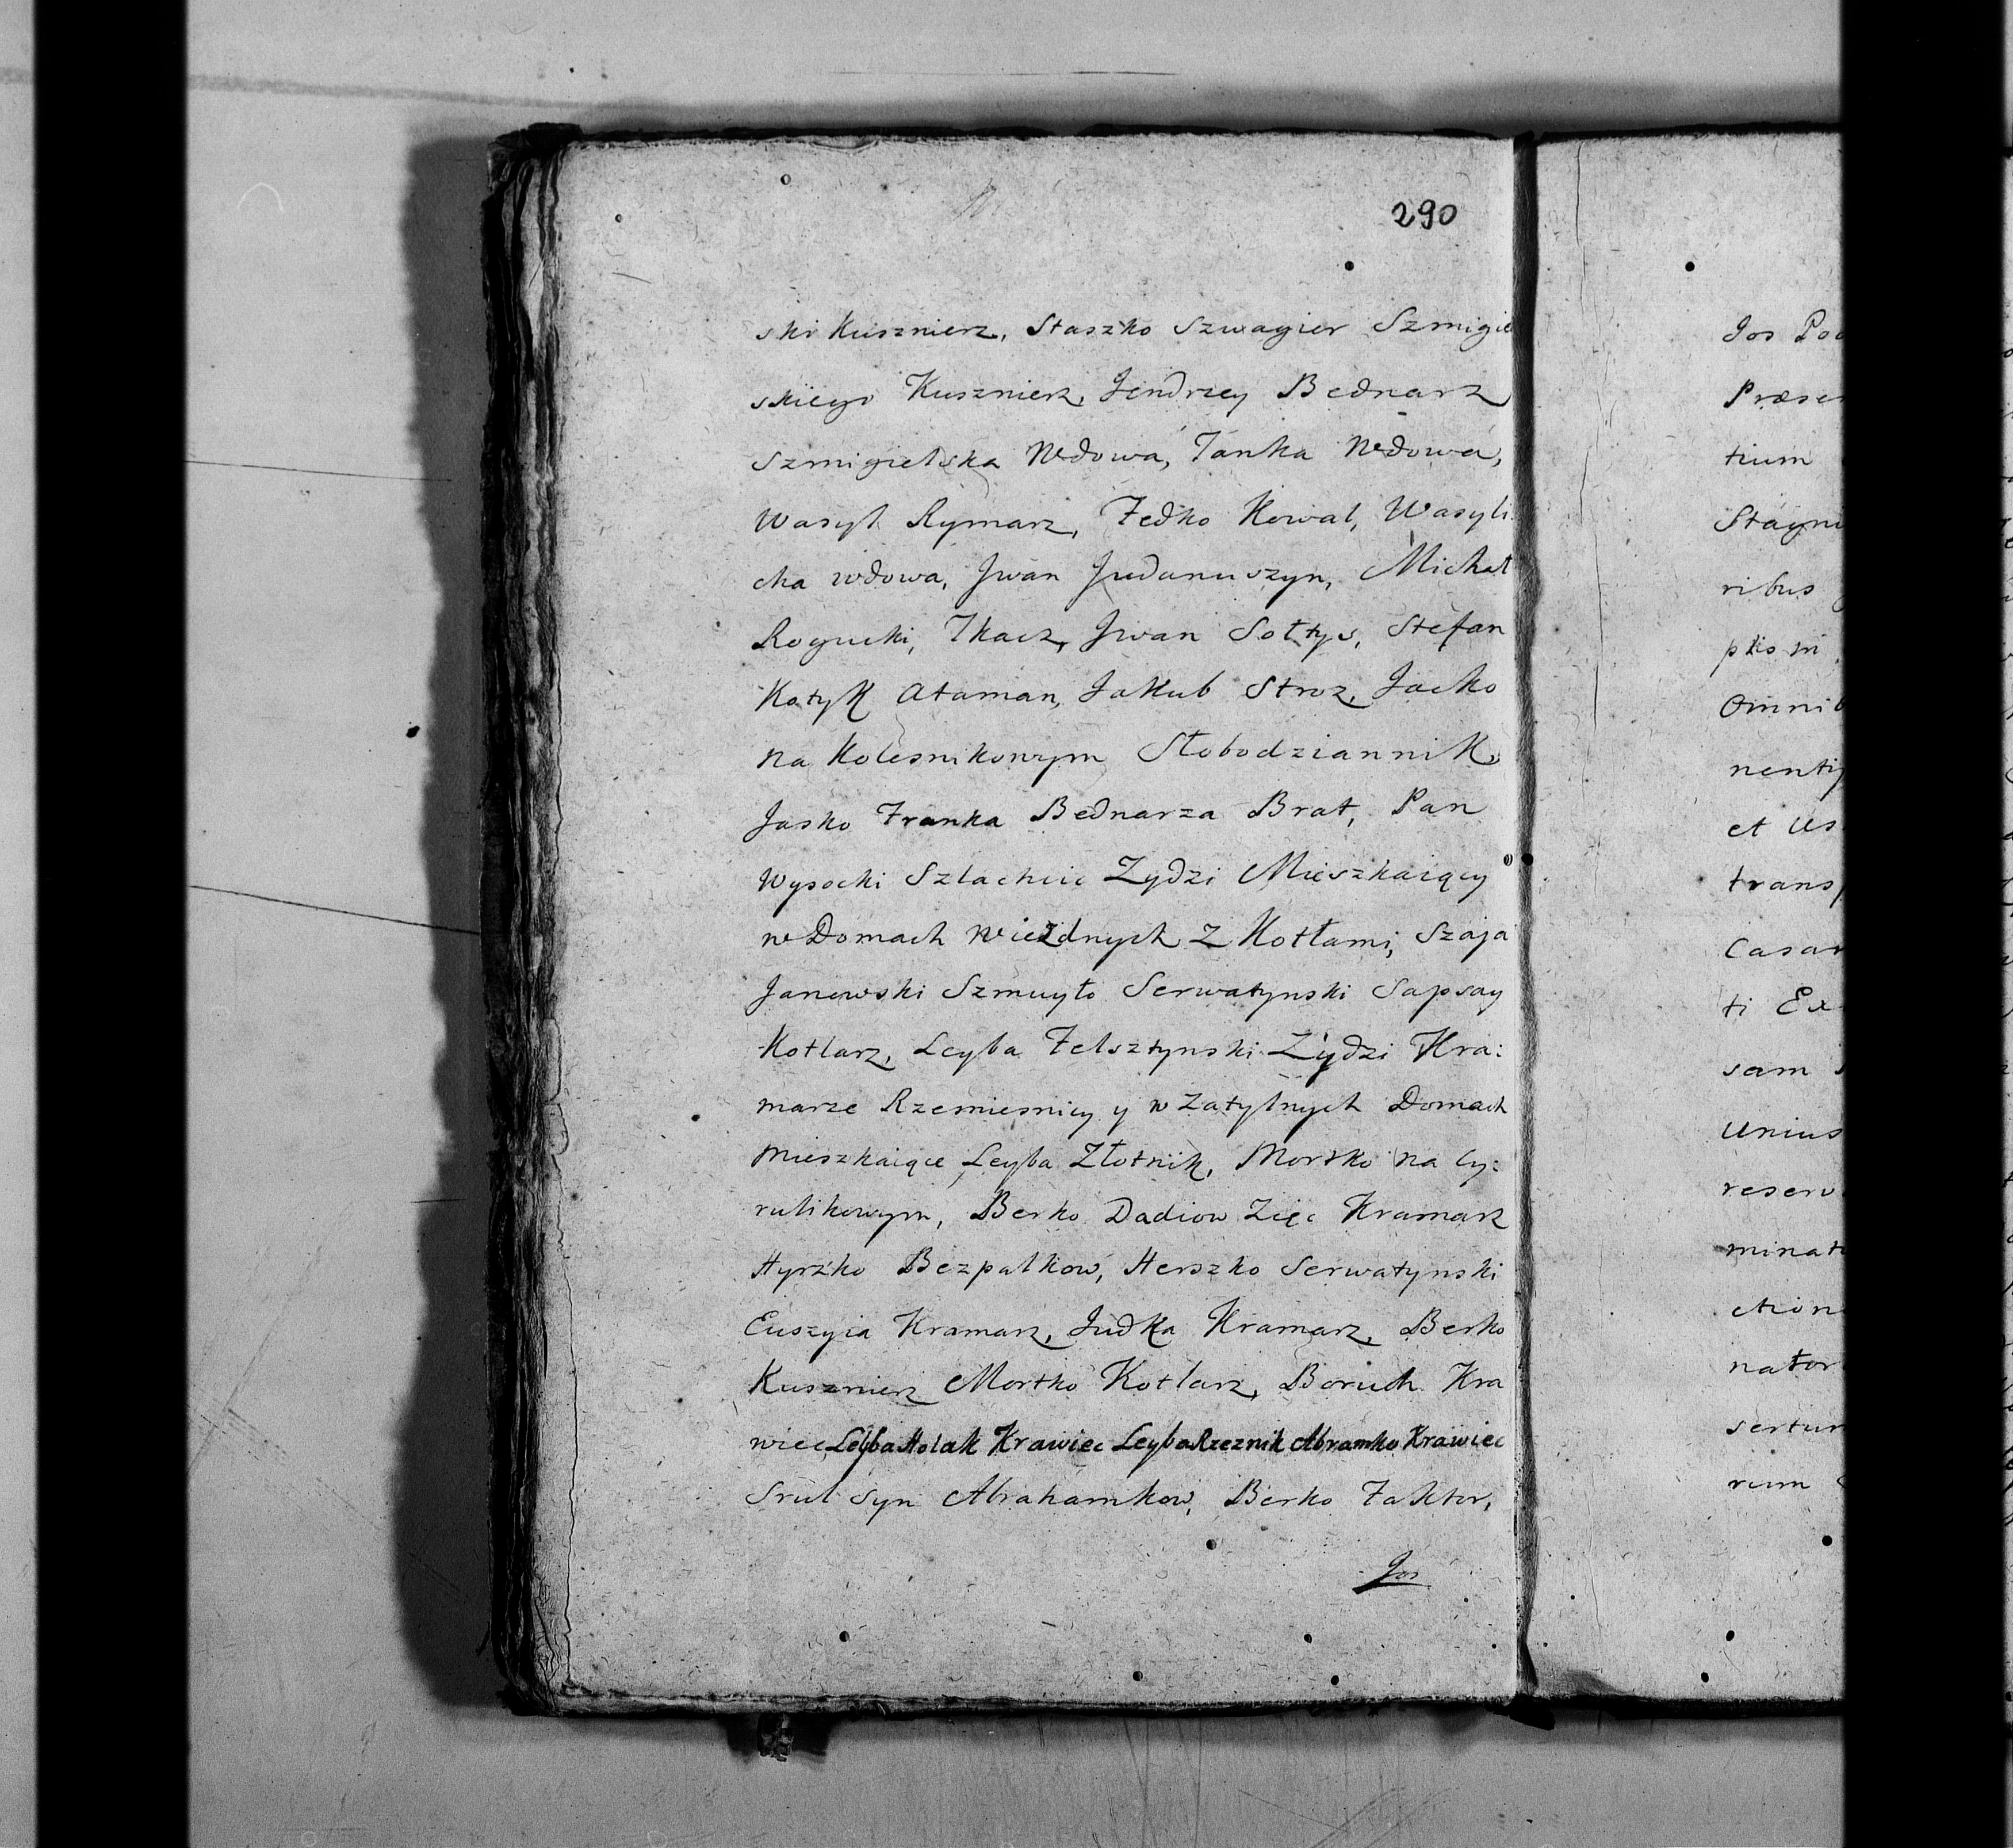 290
ski Kusznierz, Staszko Szwagier Szmigiel
skiego Kusznierz, Jendrzey Bednarz
Szmigielska Wdowa, Tanka Wdowa,
Wasyl Rymarz, Fedko Kowal, Wasyli
cha wdowa, Jwan Judanuszyn, Michał
Rogucki, Tkacz, Jwan Sołtys, Stefan
Kotyk Ataman, Jakub Stroz, Jacko
na Kolesnikowym Słobodziannik,
Jasko Franka Bednarza Brat, Pan
Wysocki Szlachcic Zydzi Mieszkaiący
w Domach wieżdnych z Kotłami, Szaja
Janowski Szmuyło Serwatynski Sapsay
Kotlarz, Leyba Felsztynski Zydzi Kra:
marze Rzemiesnicy y w Zatylnych Domach
Mieszkaiące Leyba Złotnik, Mortko na Cy:
rulikowym, Berko Dadiow Zięc Kramarz
Hyrżko Bezpalkow, Herszko Serwatynski
Euszyia Kramarz, Judka Kramarz, Berko
Kusznierz Mortko Kotlarz, Boruch Kra
wiec Leyba Holak Krawiec Leyba Rzeznik Abramko Krawiec
Srul Syn Abrahamkow, Berko Faktor,
Jos
Jos
Præse
tium
Stagn
ribus
Omnib
nentij
et us
trans
Casar
ti Ex
sam
unius
reserv
minat
ction
nator
sertur
rum